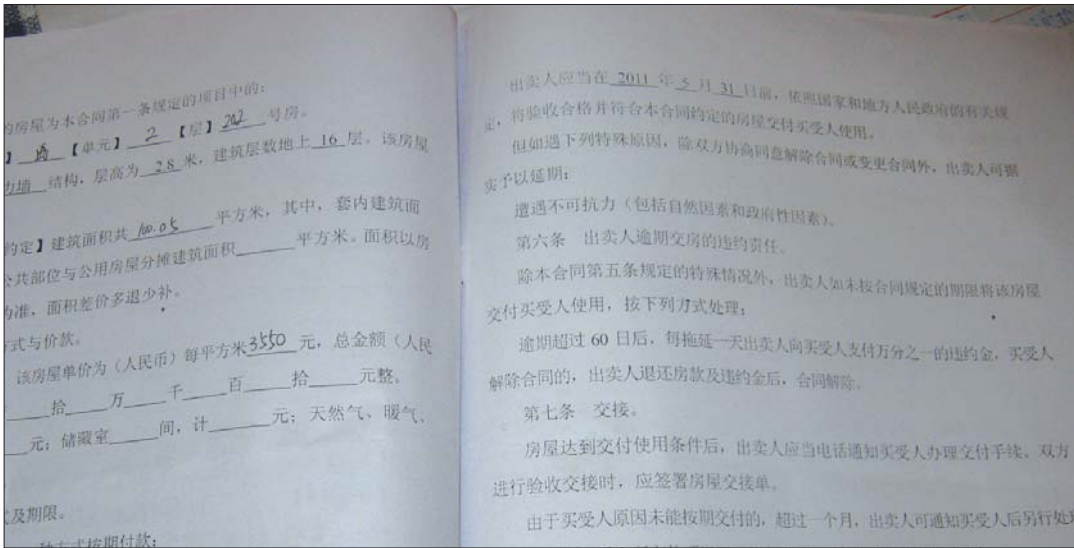 的房屋为本合同第一条规定的项目中的：
】 【单元】 2 【层】 202 号房。
力墙 结构，层高为 2.8 米，建筑层数地上 16 层。该房屋
约定】建筑面积共 100.05 平方米，其中，套内建筑面
公共部位与公用房屋分摊建筑面积______平方米。面积以房
为准，面积差价多退少补。
方式与价款。
该房屋单价为（人民币）每平方米 3550 元，总金额（人民
____拾____万____千____百____拾____元整。
____元；储藏室____间，计____元；天然气、暖气、
式及期限。
种方式按期付款：
出卖人应当在 2011 年 5 月 31 日前，依照国家和地方人民政府的有关规
定，将验收合格并符合本合同约定的房屋交付买受人使用。
但如遇下列特殊原因，除双方协商同意解除合同或变更合同外，出卖人可据
实予以延期：
遭遇不可抗力（包括自然因素和政府性因素）。
第六条 出卖人逾期交房的违约责任。
除本合同第五条规定的特殊情况外，出卖人如未按合同规定的期限将该房屋
交付买受人使用，按下列方式处理：
逾期超过 60 日后，每拖延一天出卖人向买受人支付万分之一的违约金，买受人
解除合同的，出卖人退还房款及违约金后，合同解除。
第七条 交接。
房屋达到交付使用条件后，出卖人应当电话通知买受人办理交付手续。双方
进行验收交接时，应签署房屋交接单。
由于买受人原因未能按期交付的，超过一个月，出卖人可通知买受人后另行处